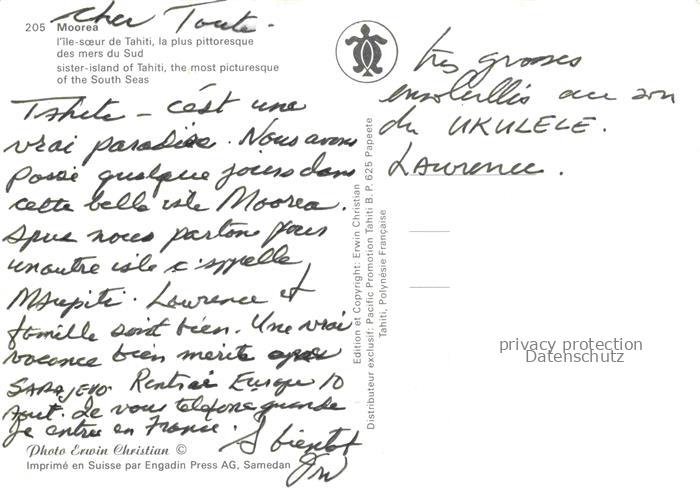 cher Toute -
205 Moorea
l'île-sœur de Tahiti, la plus pittoresque
des mers du Sud
sister-island of Tahiti, the most picturesque
of the South Seas
Tahite - c'est une
vrai paradise. Nous avons
passé quelque jours dans
cette belle isle Moorea.
nous partons pour
un autre isle s'appelle
Maupiti. Laurence et
famille sont bien. Une vrai
vacance bien merite apres
SARAJEVO. Rentrai Europe 10
Aout. Je vous telefone quande
je entre en France.
A bientot
Photo Erwin Christian ©
Imprimé en Suisse par Engadin Press AG, Samedan
Edition et Copyright: Erwin Christian
Distributeur exclusif: Pacific Promotion Tahiti B.P. 625 Papeete
Tahiti, Polynésie Française
très grosses
ensoleillis au son
du UKULELE.
Laurence.
privacy protection
Datenschutz